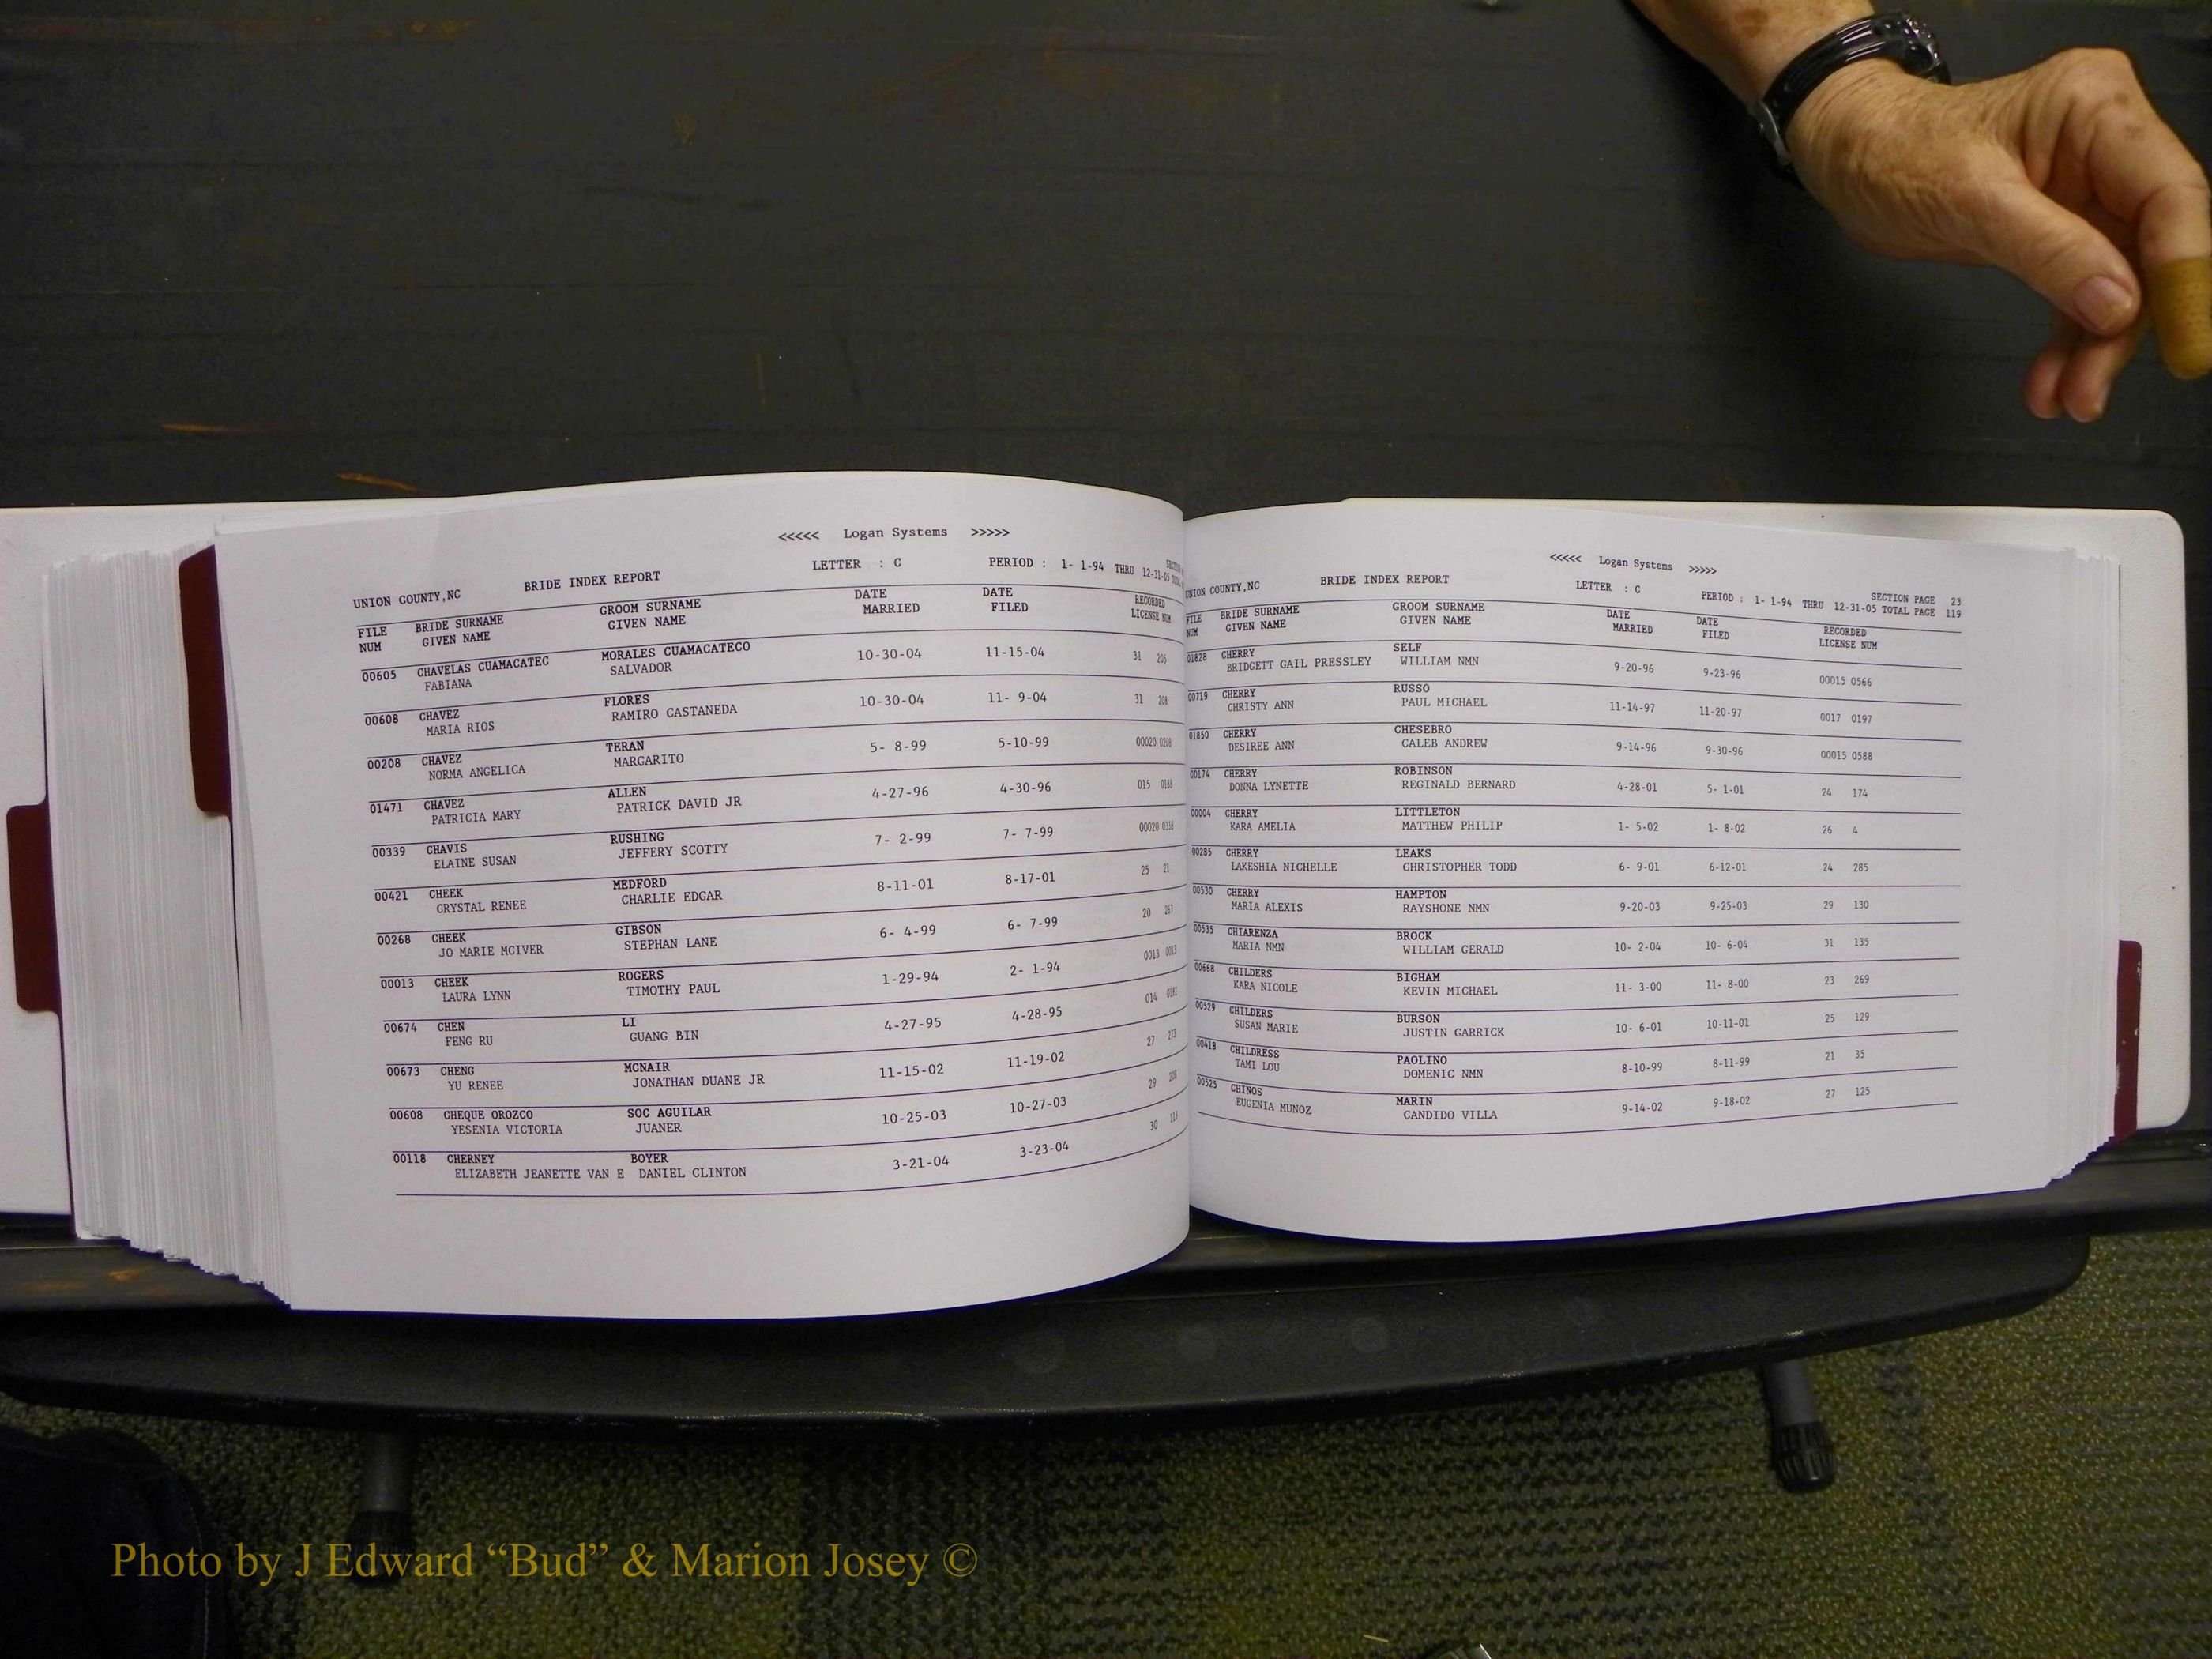 <<<<< Logan Systems >>>>>
UNION COUNTY,NC BRIDE INDEX REPORT LETTER : C PERIOD : 1- 1-94 THRU 12-31-05
FILE BRIDE SURNAME GROOM SURNAME DATE DATE RECORDED
NUM GIVEN NAME GIVEN NAME MARRIED FILED LICENSE NUM
00605 CHAVELAS CUAMACATEC MORALES CUAMACATECO 10-30-04 11-15-04 31 205
FABIANA SALVADOR
00608 CHAVEZ FLORES 10-30-04 11- 9-04 31 208
MARIA RIOS RAMIRO CASTANEDA
00208 CHAVEZ TERAN 5- 8-99 5-10-99 00020 0208
NORMA ANGELICA MARGARITO
01471 CHAVEZ ALLEN 4-27-96 4-30-96 015
PATRICIA MARY PATRICK DAVID JR
00339 CHAVIS RUSHING 7- 2-99 7- 7-99 00020
ELAINE SUSAN JEFFERY SCOTTY
00421 CHEEK MEDFORD 8-11-01 8-17-01 25 21
CRYSTAL RENEE CHARLIE EDGAR
00268 CHEEK GIBSON 6- 4-99 6- 7-99 20 267
JO MARIE MCIVER STEPHAN LANE
00013 CHEEK ROGERS 1-29-94 2- 1-94 0013 0013
LAURA LYNN TIMOTHY PAUL
00674 CHEN LI 4-27-95 4-28-95 014
FENG RU GUANG BIN
00673 CHENG MCNAIR 11-15-02 11-19-02 27
YU RENEE JONATHAN DUANE JR
00608 CHEQUE OROZCO SOC AGUILAR 10-25-03 10-27-03 29 208
YESENIA VICTORIA JUANER
00118 CHERNEY BOYER 3-21-04 3-23-04 30 118
ELIZABETH JEANETTE VAN E DANIEL CLINTON
<<<<< Logan Systems >>>>>
UNION COUNTY,NC BRIDE INDEX REPORT LETTER : C SECTION PAGE 23
PERIOD : 1- 1-94 THRU 12-31-05 TOTAL PAGE 119
FILE BRIDE SURNAME GROOM SURNAME DATE DATE RECORDED
NUM GIVEN NAME GIVEN NAME MARRIED FILED LICENSE NUM
01828 CHERRY SELF 9-20-96 9-23-96 00015 0566
BRIDGETT GAIL PRESSLEY WILLIAM NMN
00719 CHERRY RUSSO 11-14-97 11-20-97 0017 0197
CHRISTY ANN PAUL MICHAEL
01850 CHERRY CHESEBRO 9-14-96 9-30-96 00015 0588
DESIREE ANN CALEB ANDREW
00174 CHERRY ROBINSON 4-28-01 5- 1-01 24 174
DONNA LYNETTE REGINALD BERNARD
00004 CHERRY LITTLETON 1- 5-02 1- 8-02 26 4
KARA AMELIA MATTHEW PHILIP
00285 CHERRY LEAKS 6- 9-01 6-12-01 24 285
LAKESHIA NICHELLE CHRISTOPHER TODD
00530 CHERRY HAMPTON 9-20-03 9-25-03 29 130
MARIA ALEXIS RAYSHONE NMN
00535 CHIARENZA BROCK 10- 2-04 10- 6-04 31 135
MARIA NMN WILLIAM GERALD
00668 CHILDERS BIGHAM 11- 3-00 11- 8-00 23 269
KARA NICOLE KEVIN MICHAEL
00529 CHILDERS BURSON 10- 6-01 10-11-01 25 129
SUSAN MARIE JUSTIN GARRICK
00418 CHILDRESS PAOLINO 8-10-99 8-11-99 21 35
TAMI LOU DOMENIC NMN
00525 CHINOS MARIN 9-14-02 9-18-02 27 125
EUGENIA MUNOZ CANDIDO VILLA
Photo by J Edward “Bud” & Marion Josey ©